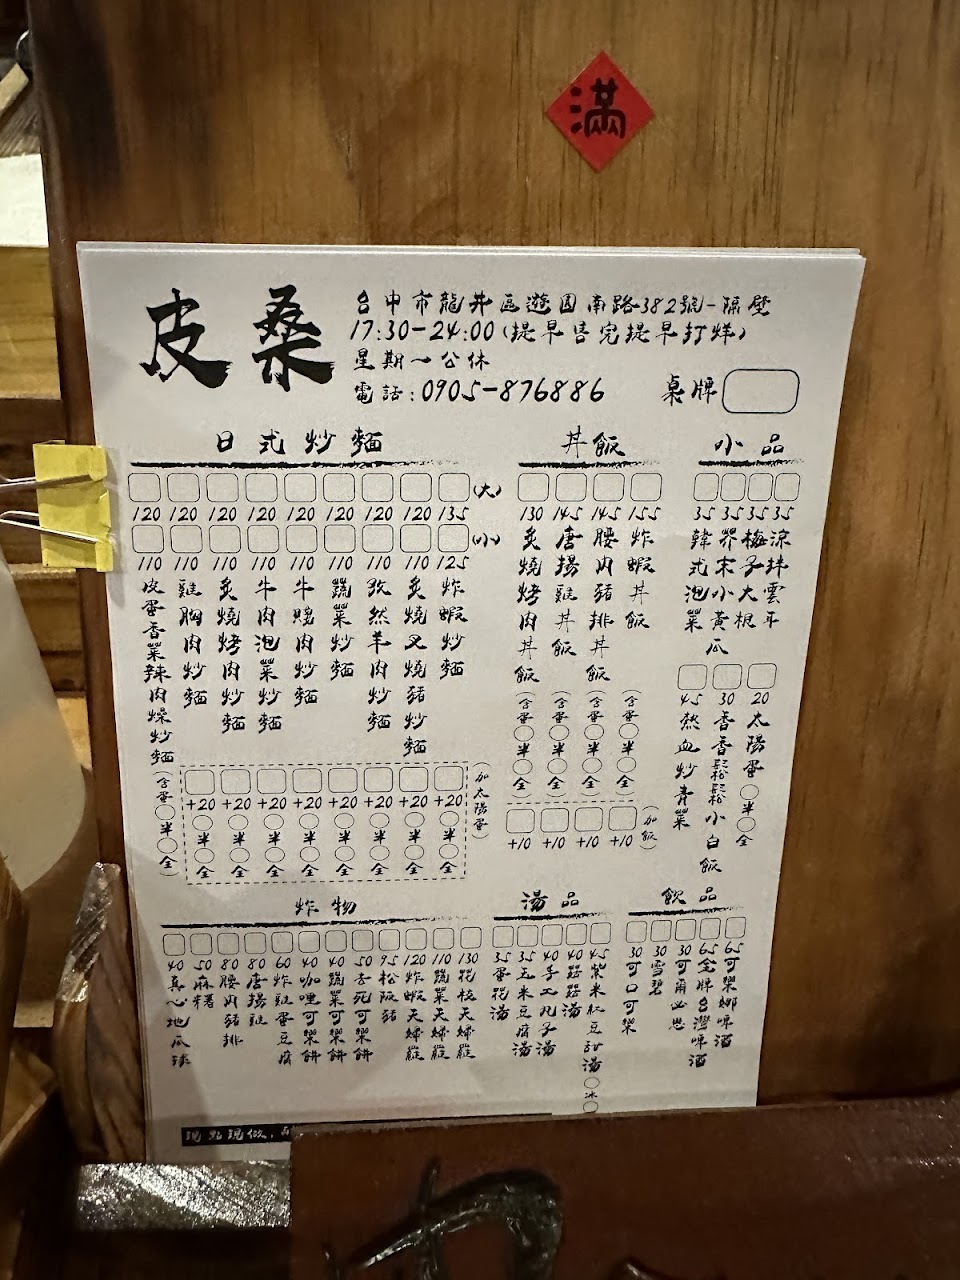 滿
皮桑
台中市龍井區遊園南路382號-隔壁
17:30-24:00(提早售完提早打烊)
星期一公休
電話:0905-876886
桌牌
日式炒麵
(大)
120 120 120 120 120 120 120 120 135
(小)
110 110 110 110 110 110 110 110 125
皮蛋香菜辣肉燥炒麵
雞胸肉炒麵
炙燒烤肉炒麵
牛肉泡菜炒麵
牛肉炒麵
蔬菜炒麵
孜然羊肉炒麵
炙燒叉燒豬炒麵
炸蝦炒麵
(含蛋○半○全)
+20 +20 +20 +20 +20 +20 +20 +20
半 半 半 半 半 半 半 半
全 全 全 全 全 全 全 全
(加太陽蛋)
丼飯
130 145 145 155
炙燒烤肉丼飯
唐揚雞丼飯
腰內豬排丼飯
炸蝦丼飯
(含蛋○半○全)
(含蛋○半○全)
(含蛋○半○全)
(含蛋○半○全)
+10 +10 +10 +10
(加飯)
小品
35 35 35 35
韓式泡菜
芥末小黃瓜
梅子大根
涼拌雲耳
45 熱血炒青菜
30 香香鬆鬆小白飯
20 太陽蛋○半○全
炸物
40 真心地瓜球
50 麻糬
80 腰內豬排
80 唐揚雞
60 炸雞蛋豆腐
40 咖哩可樂餅
40 蔬菜可樂餅
50 去死可樂餅
95 松阪豬
120 炸蝦天婦羅
110 蔬菜天婦羅
130 花枝天婦羅
湯品
35 蛋花湯
35 玉米豆腐湯
40 手工丸子湯
40 餛飩湯
45 紫米紅豆甜湯○冰○
飲品
30 可口可樂
30 雪碧
30 可爾必思
65 金牌台灣啤酒
65 可樂娜啤酒
現點現做,